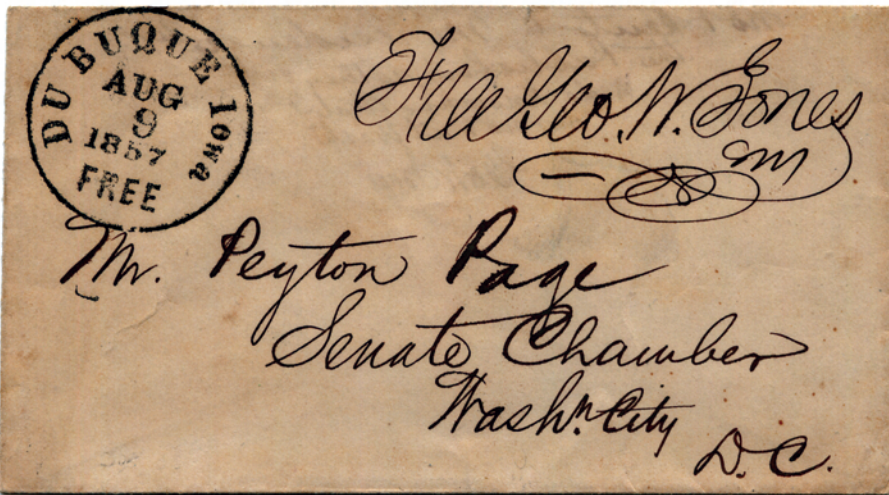 DUBUQUE Iowa
AUG
9
1857
FREE
Free Geo. W. Jones
Mr. Peyton Page
Senate Chamber
Washn. City
D.C.